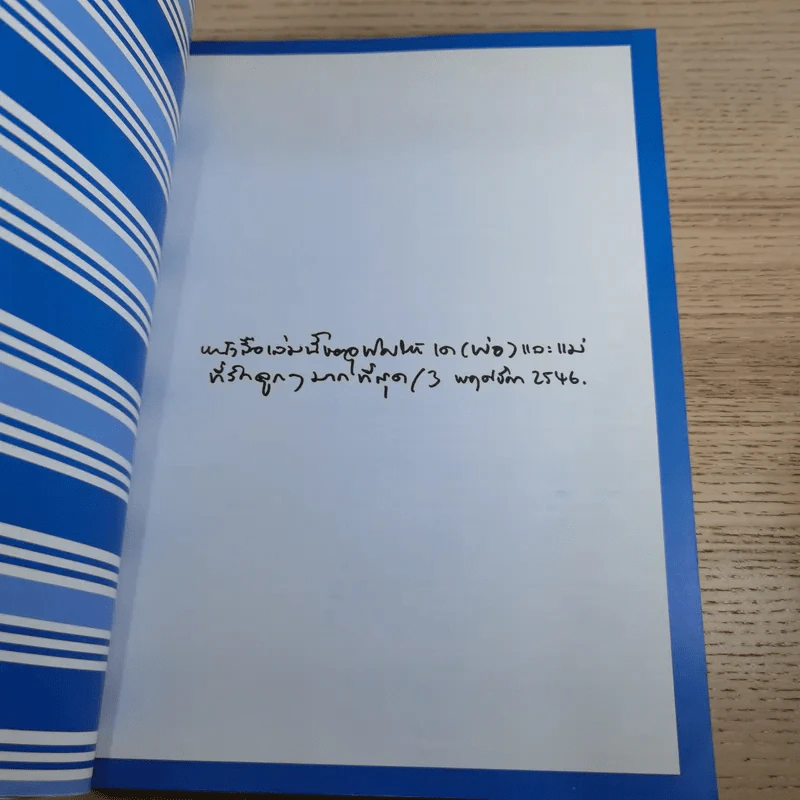 หนังสือเล่มนี้ขออุทิศให้ เตา(พ่อ) และแม่
ที่รักลูกๆ มากที่สุด/3 พฤศจิกา 2546.